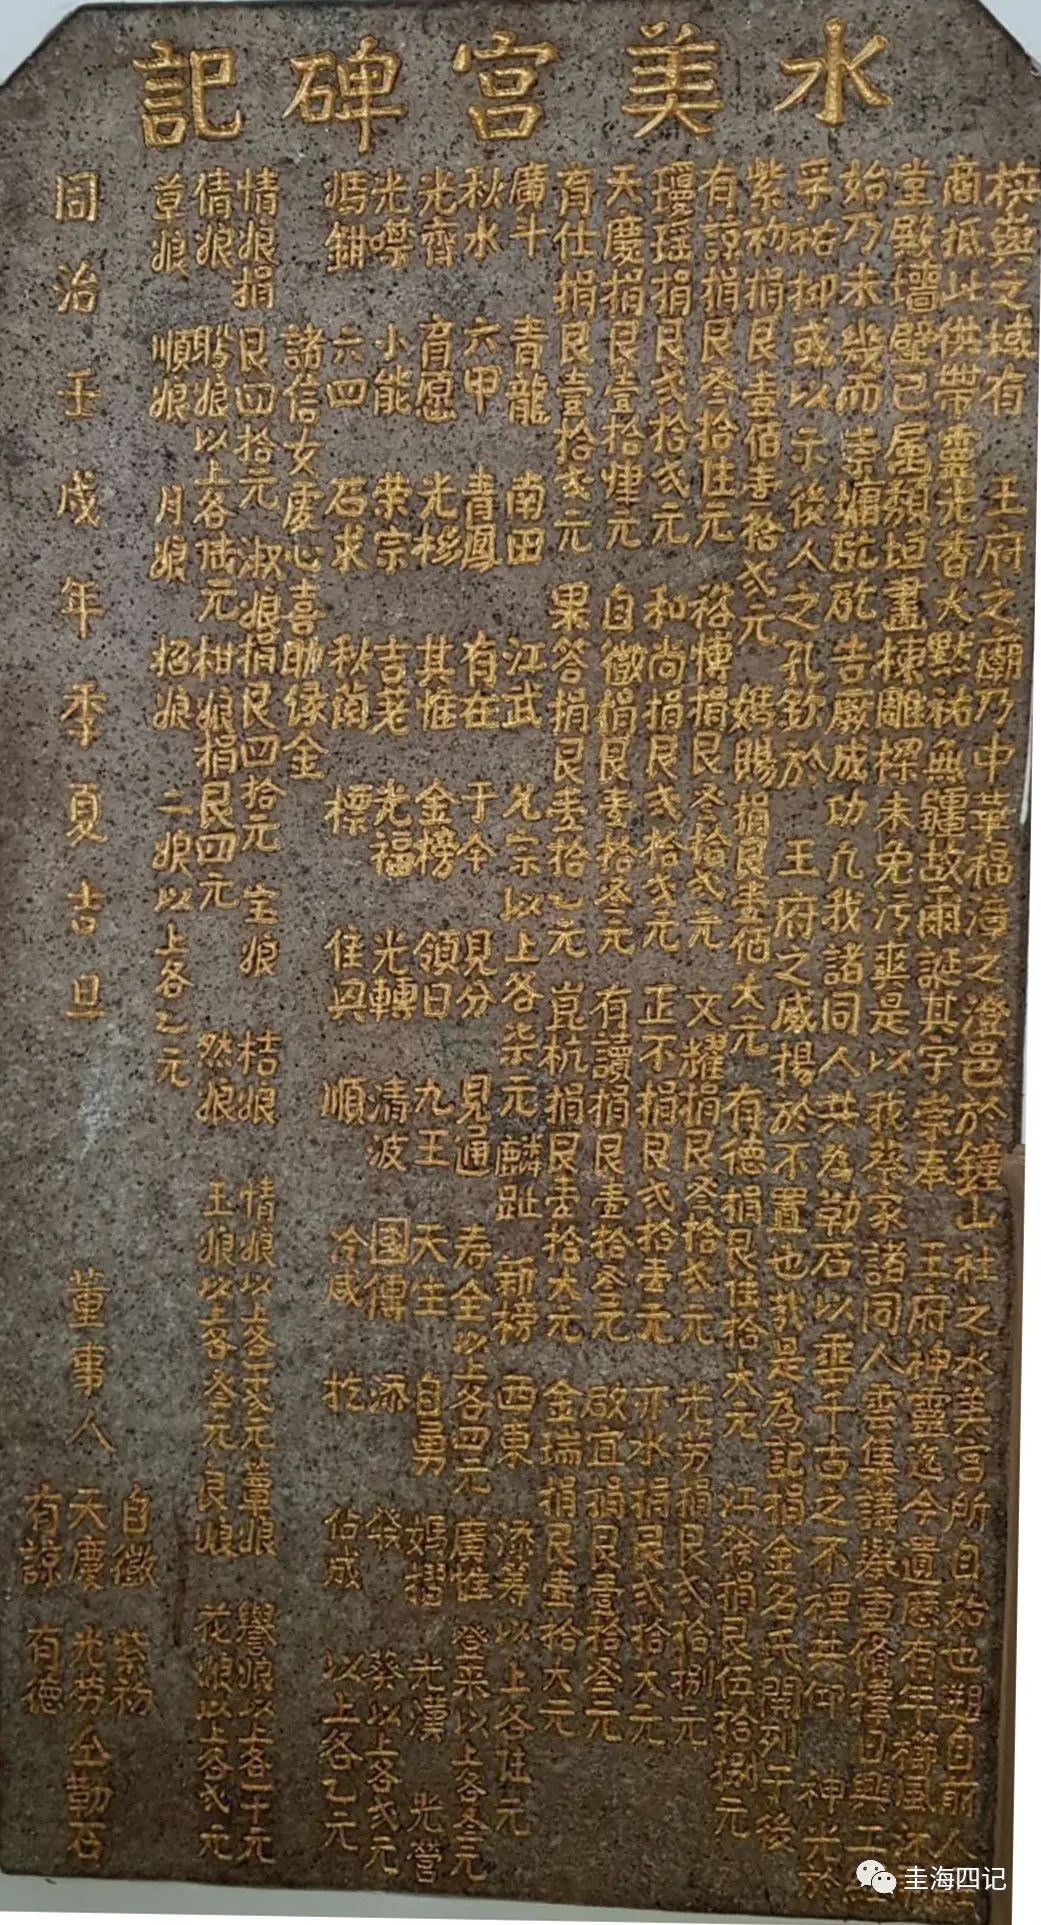 水美宮碑記
檳與之域有　王府之廟乃中華福漳之澄邑於鐘山社之水美宮所自始也朔自前人
商抵此供帶靈光香火默祐無疆故爾誕其宇崇奉　王府神靈迄今遺應有年
堂殿墻壁已屬頹垣畫棟雕樑未免污
是以我蔡家諸同人雲集議舉重修擇日興工
始乃未幾而崇 告厥成功凢我諸同人共為勒石以垂千古之不禋共仰　神光於
孚祐抑或以示後人之孔欽於　王府之威揚於不置也哉是為記捐金名氏開列于後
紫初捐艮壹佰壹拾弍元　媽賜捐艮壹佰大元　有德捐艮 拾大元　江發捐艮伍拾捌元
有諒捐艮叁拾 元　啓博捐艮叁拾弍元　文耀捐艮叁拾弍元　光勞捐艮弍拾捌元
瓊瑤捐艮弍拾弍元　和尚捐艮弍拾弍元　正不捐艮弍拾壹元　亦水捐艮弍拾大元
天慶捐艮壹拾 元　自徵捐艮壹拾叁元　有讀捐艮壹拾叁元　啟宜捐艮壹拾叁元
育仕捐艮壹拾弍元　果答捐艮壹拾乙元　崑杭捐艮壹拾大元　金瑞捐艮壹拾大元
廣斗　青龍　南田　江武　允宗以上各柒元　麟趾　新榜　西東　添籌　以上各 元
秋水　六甲　青鳳　有在　于今　見分　見通　寿全以上各四元　廣惟　登采以上各叁元
光齊　育愿　光彬　其惟　金榜　領日　九王　天生　自勇　媽摺　光漢　光營
光嘪　小能　荣宗　吉老　光福　光轉　清波　國傳　添　發　癸以上各弍元
媽鉗　六四　石求　秋蘭　標　 順　冷咸　扢　佔成　以上各乙元
諸信女虔心喜助緣金
情娘捐艮四拾元　淑娘捐艮四拾元　宝娘　桔娘　情娘以上各二大元　華娘　譽娘以上各一十元
倩娘　聘娘以上各陆元　柑娘捐艮四元　然娘　玉娘以上各叁元　良娘　花娘以上各弍元
草娘　順娘　月娘　招娘　二娘以上各乙元
同治壬戌年季夏吉旦　董事人
自徵　紫初
天慶　光勞　仝勒石
有諒　有德
圭海四记